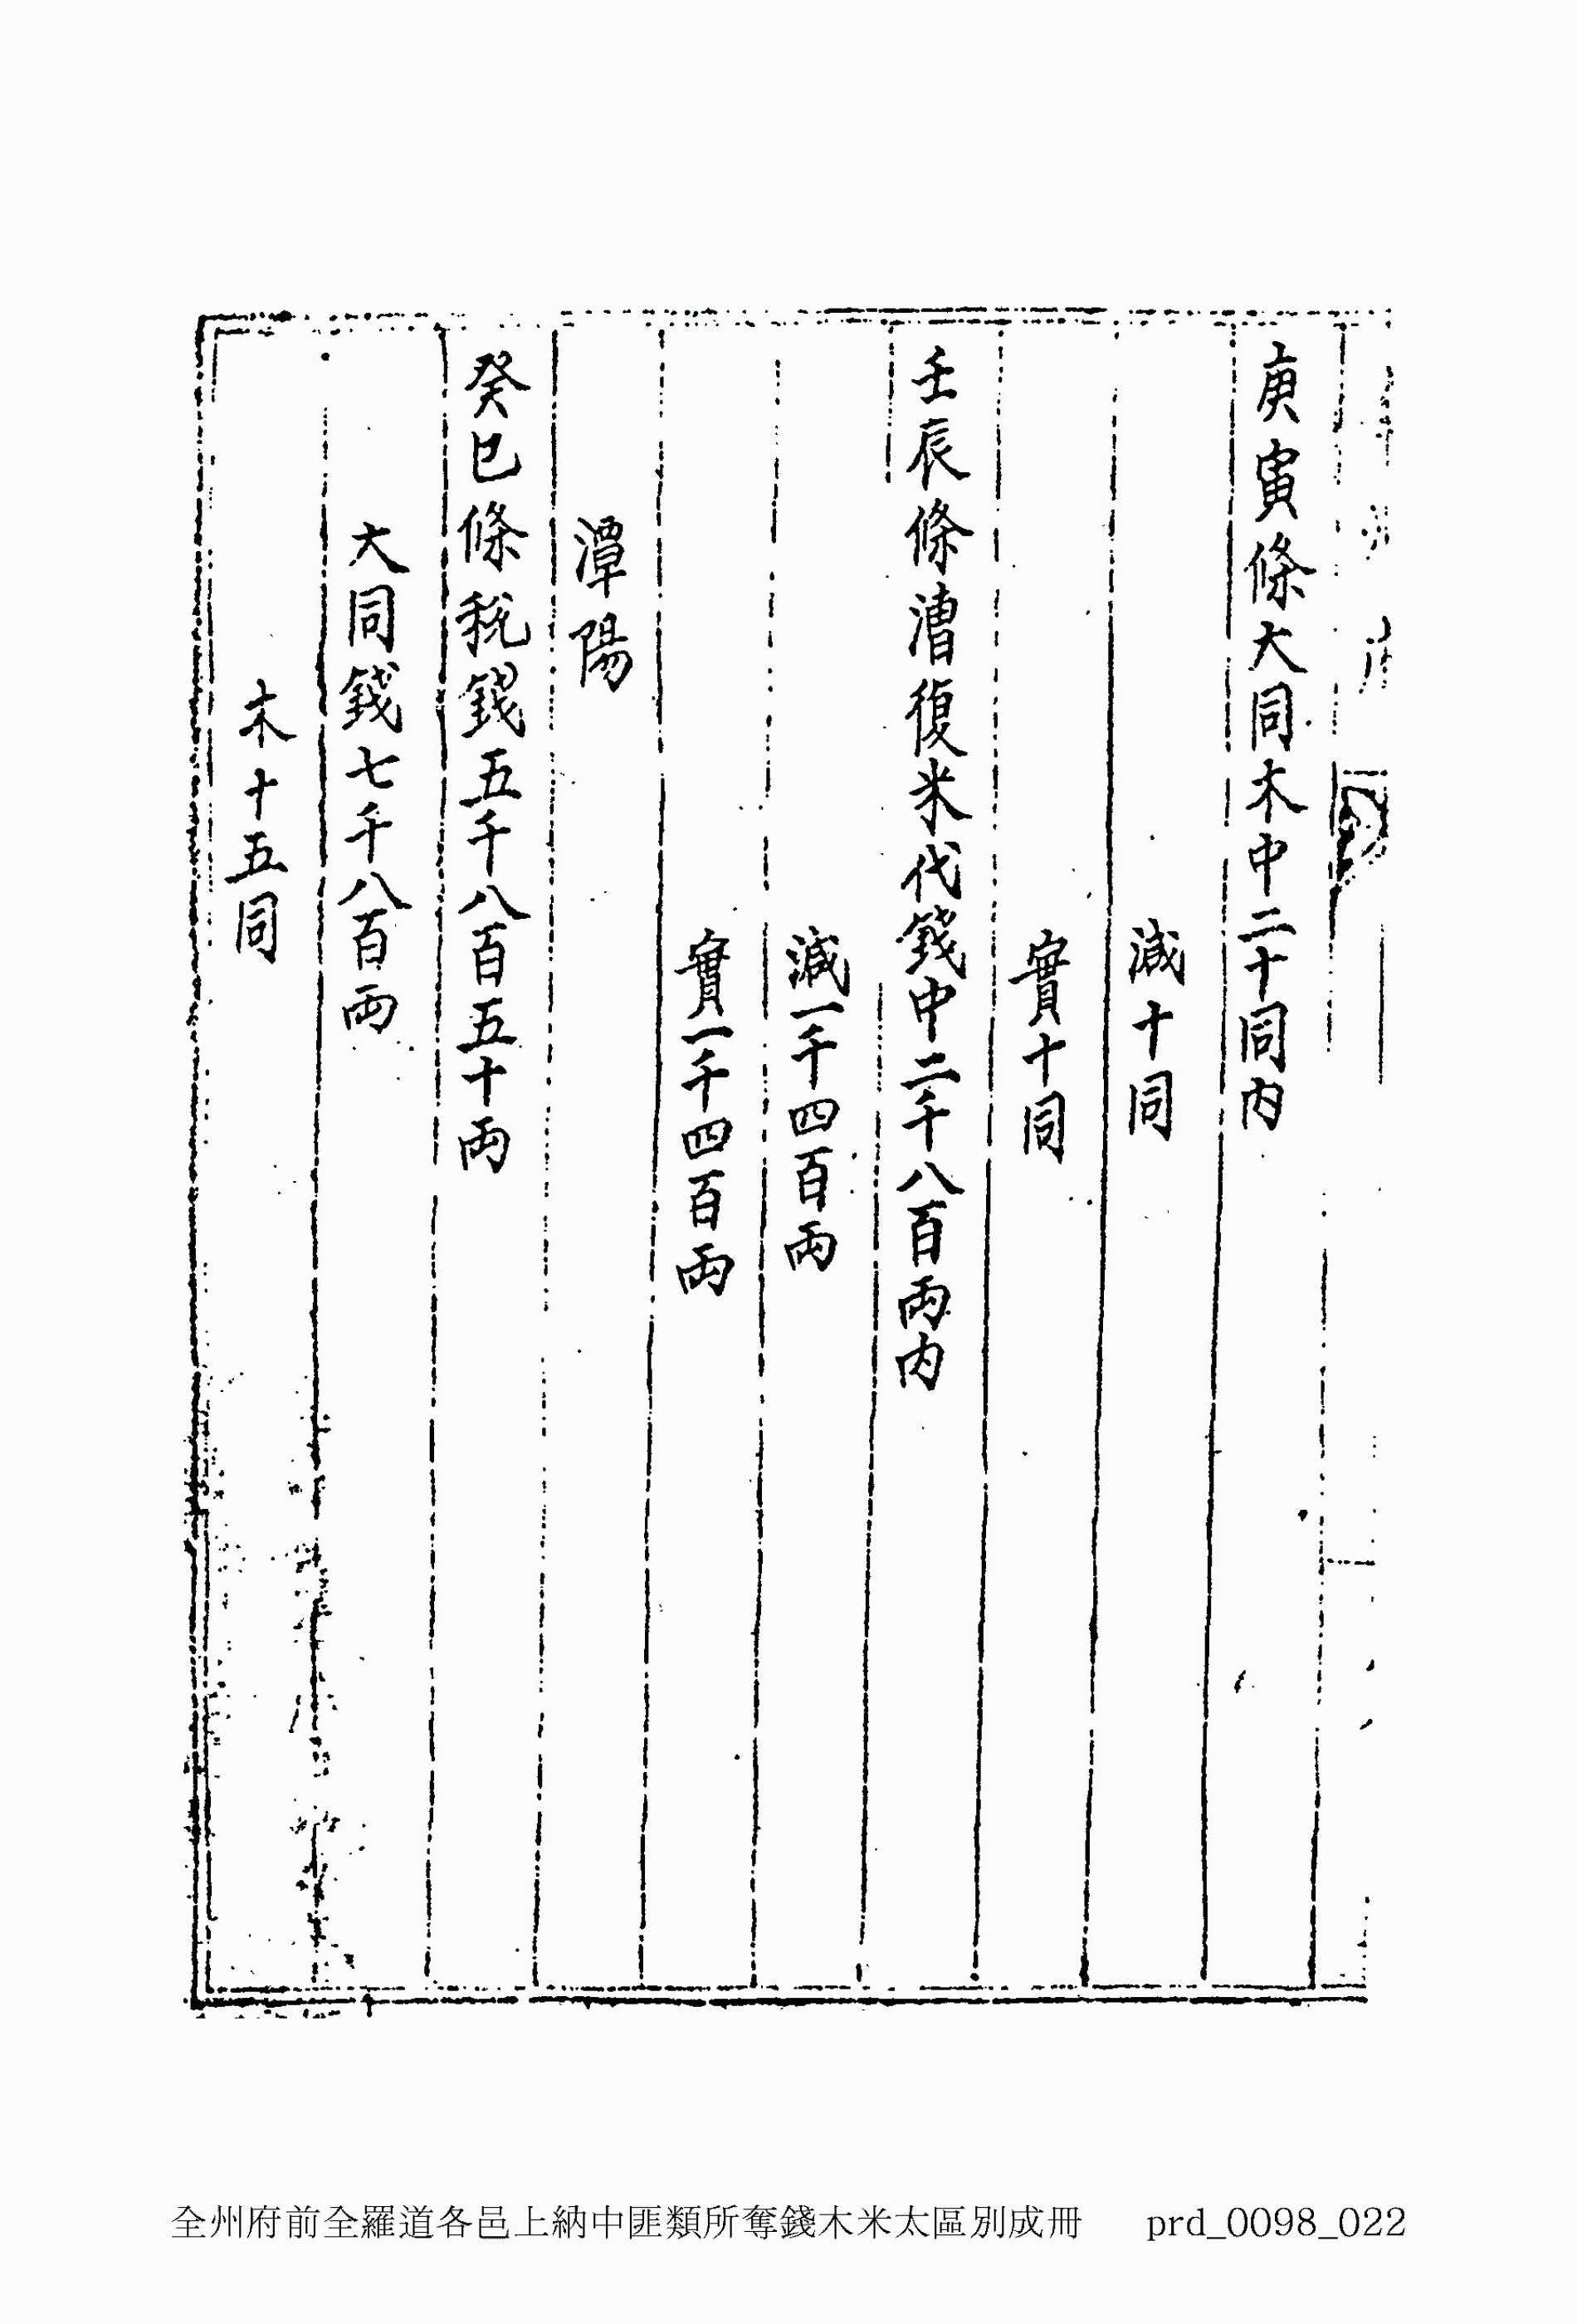 庚寅條大同木中二十同內
減十同
實十同
壬辰條漕復米代錢中二千八百兩內
減一千四百兩
實一千四百兩
潭陽
癸巳條稅錢五千八百五十兩
大同錢七千八百兩
木十五同
全州府前全羅道各邑上納中匪類所奪錢木米太區別成冊 prd_0098_022